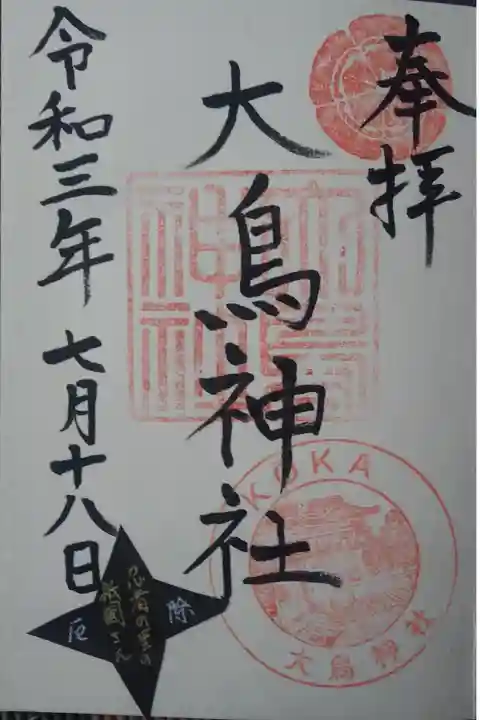 奉拝
大鳥神社
令和三年七月十八日
大鳥神社
KOKA
大鳥神社
忍者の里の
祇園さん
厄
除